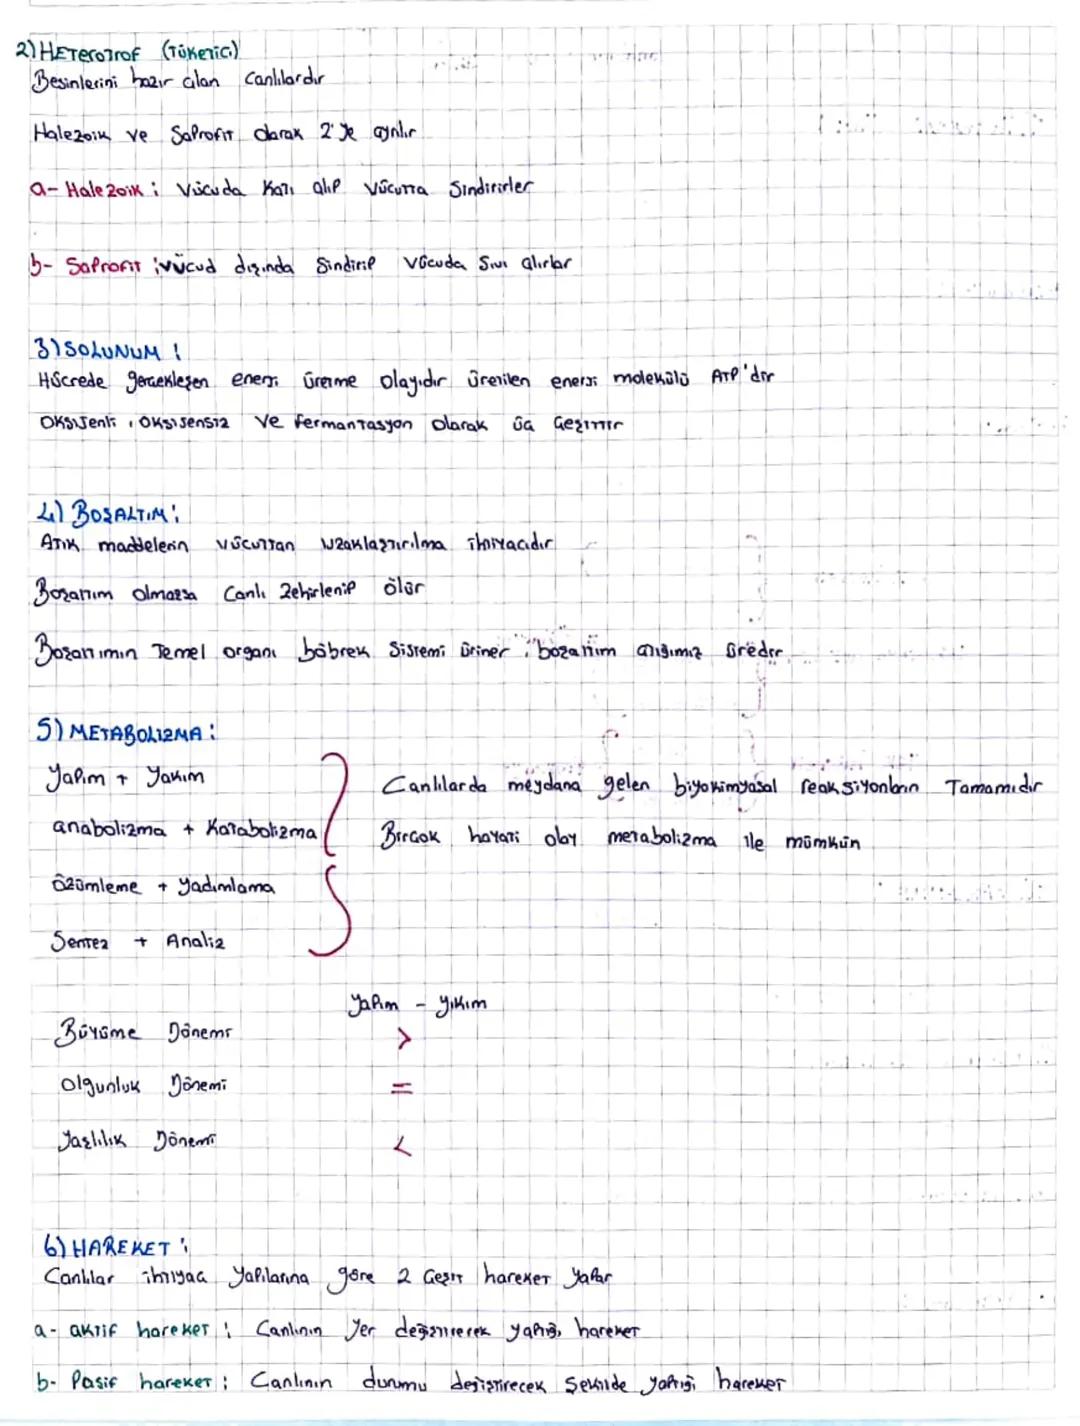 2) HETEROTROF (TÜKETİCİ)
Besinlerini hazır alan canlılardır
Halezoik ve Saprofit olarak 2'ye ayrılır
a- Halezoik : Vücuda Katı alıp vücutta Sindirirler
b- Saprofit : vücud dışında Sindirip vücuda Sıvı alırlar
3) SOLUNUM :
Hücrede gerçekleşen enerji üretme olayıdır üretilen enerji molekülü ATP'dir
Oksijenli, Oksijensiz ve fermantasyon olarak üç çeşittir
4) BOŞALTIM :
Atık maddelerin vücuttan uzaklaştırılma ihtiyacıdır
Boşaltım olmazsa Canlı Zehirlenip ölür
Boşaltımın Temel organı böbrek Sistemi üriner, boşaltım atığımız üredir
5) METABOLİZMA :
Yapım + Yakım
Canlılarda meydana gelen biyokimyasal reaksiyonların Tamamıdır
anabolizma + Katabolizma
Birçok hayati olay metabolizma ile mümkün
Özümleme + Yadımlama
Sentez + Analiz
Yapım - yıkım
Büyüme Dönemi >
Olgunluk Dönemi =
Yaşlılık Dönemi <
6) HAREKET :
Canlılar ihtiyaç Yapılarına göre 2 çeşit hareket Yapar
a- aktif hareket : Canlının Yer değiştirerek yaptığı hareket
b- Pasif hareket : Canlının durumu değiştirecek Şekilde yaptığı hareket